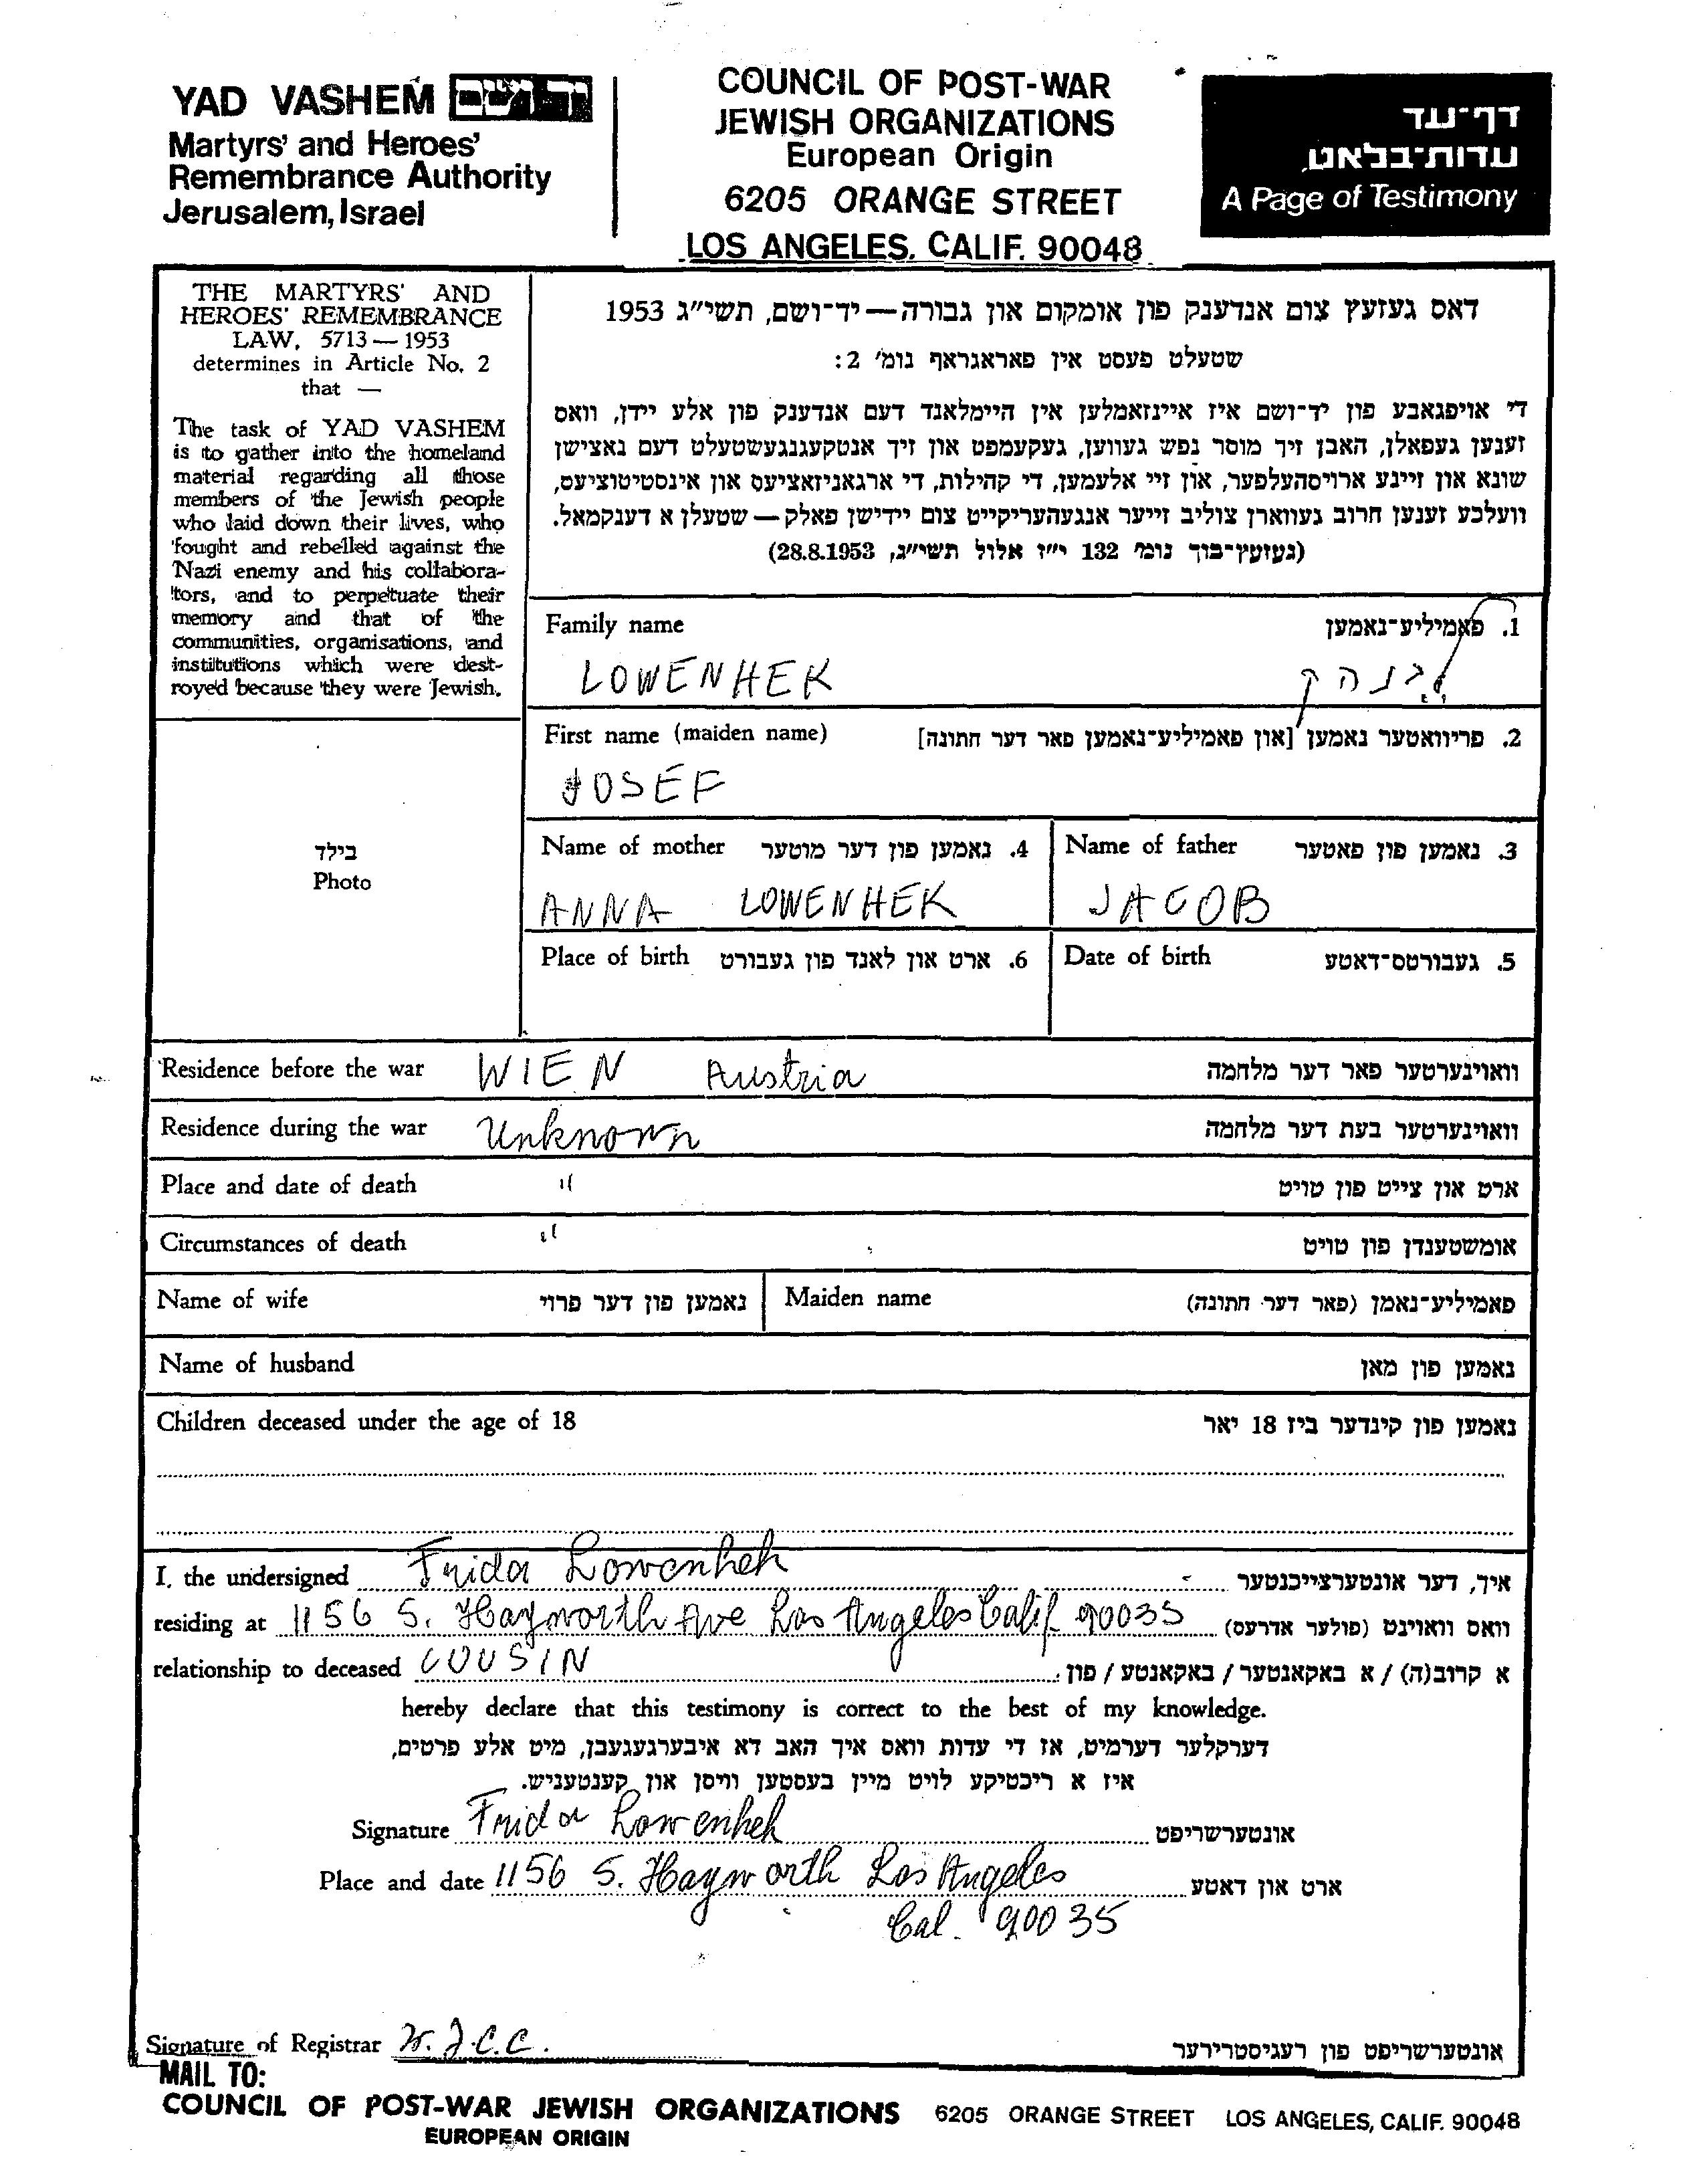 YAD VASHEM יד ושם
Martyrs' and Heroes'
Remembrance Authority
Jerusalem, Israel
COUNCIL OF POST-WAR
JEWISH ORGANIZATIONS
European Origin
6205 ORANGE STREET
LOS ANGELES, CALIF. 90048
דף-עד
עדות-בלאט
A Page of Testimony
THE MARTYRS' AND
HEROES' REMEMBRANCE
LAW, 5713 — 1953
determines in Article No. 2
that —
The task of YAD VASHEM
is to gather into the homeland
material regarding all those
members of the Jewish people
who laid down their lives, who
fought and rebelled against the
Nazi enemy and his collabora-
tors, and to perpetuate their
memory and that of the
communities, organisations, and
institutions which were dest-
royed because they were Jewish.
דאס געזעץ צום אנדענק פון אומקום און גבורה — יד-ושם, תשי״ג 1953
שטעלט פעסט אין פאראגראף נומ׳ 2:
די אויפגאבע פון יד-ושם איז איינזאמלען אין היימלאנד דעם אנדענק פון אלע יידן, וואס
זענען געפאלן, האבן זיך מוסר נפש געווען, געקעמפט און זיך אנטקעגנגעשטעלט דעם נאצישן
שונא און זיינע ארויסהעלפער, און זיי אלעמען, די קהילות, די ארגאניזאציעס און אינסטיטוציעס,
וועלכע זענען חרוב געווארן צוליב זייער אנגעהעריקייט צום יידישן פאלק — שטעלן א דענקמאל.
(געזעץ-בוך נומ׳ 132 י״ז אלול תשי״ג, 28.8.1953)
Family name 1. פאמיליע-נאמען
LOWENHEK
First name (maiden name) 2. פריוואטער נאמען [און פאמיליע-נאמען פאר דער חתונה]
JOSEF
Name of mother 4. נאמען פון דער מוטער Name of father 3. נאמען פון פאטער
ANNA LOWENHEK JACOB
בילד
Photo
Place of birth 6. ארט און לאנד פון געבורט Date of birth 5. געבורטס-דאטע
Residence before the war WIEN Austria וואוינערטער פאר דער מלחמה
Residence during the war Unknown וואוינערטער בעת דער מלחמה
Place and date of death " ארט און צייט פון טויט
Circumstances of death " אומשטענדן פון טויט
Name of wife נאמען פון דער פרוי Maiden name פאמיליע-נאמן (פאר דער חתונה)
Name of husband נאמען פון מאן
Children deceased under the age of 18 נאמען פון קינדער ביז 18 יאר
I, the undersigned Frida Lowenhek איך, דער אונטערצייכנטער
residing at 1156 S. Hayworth Ave Los Angeles Calif 90035 וואס וואוינט (פולער אדרעס)
relationship to deceased COUSIN א קרוב(ה) / א באקאנטער / באקאנטע / פון
hereby declare that this testimony is correct to the best of my knowledge.
דערקלער דערמיט, אז די עדות וואס איך האב דא איבערגעגעבן, מיט אלע פרטים,
איז א ריכטיקע לויט מיין בעסטען וויסן און קענטעניש.
Signature Frida Lowenhek אונטערשריפט
Place and date 1156 S. Hayworth Los Angeles ארט און דאטע
Cal. 90035
Signature of Registrar W.J.C.C. אונטערשריפט פון רעגיסטרירער
MAIL TO:
COUNCIL OF POST-WAR JEWISH ORGANIZATIONS 6205 ORANGE STREET LOS ANGELES, CALIF. 90048
EUROPEAN ORIGIN